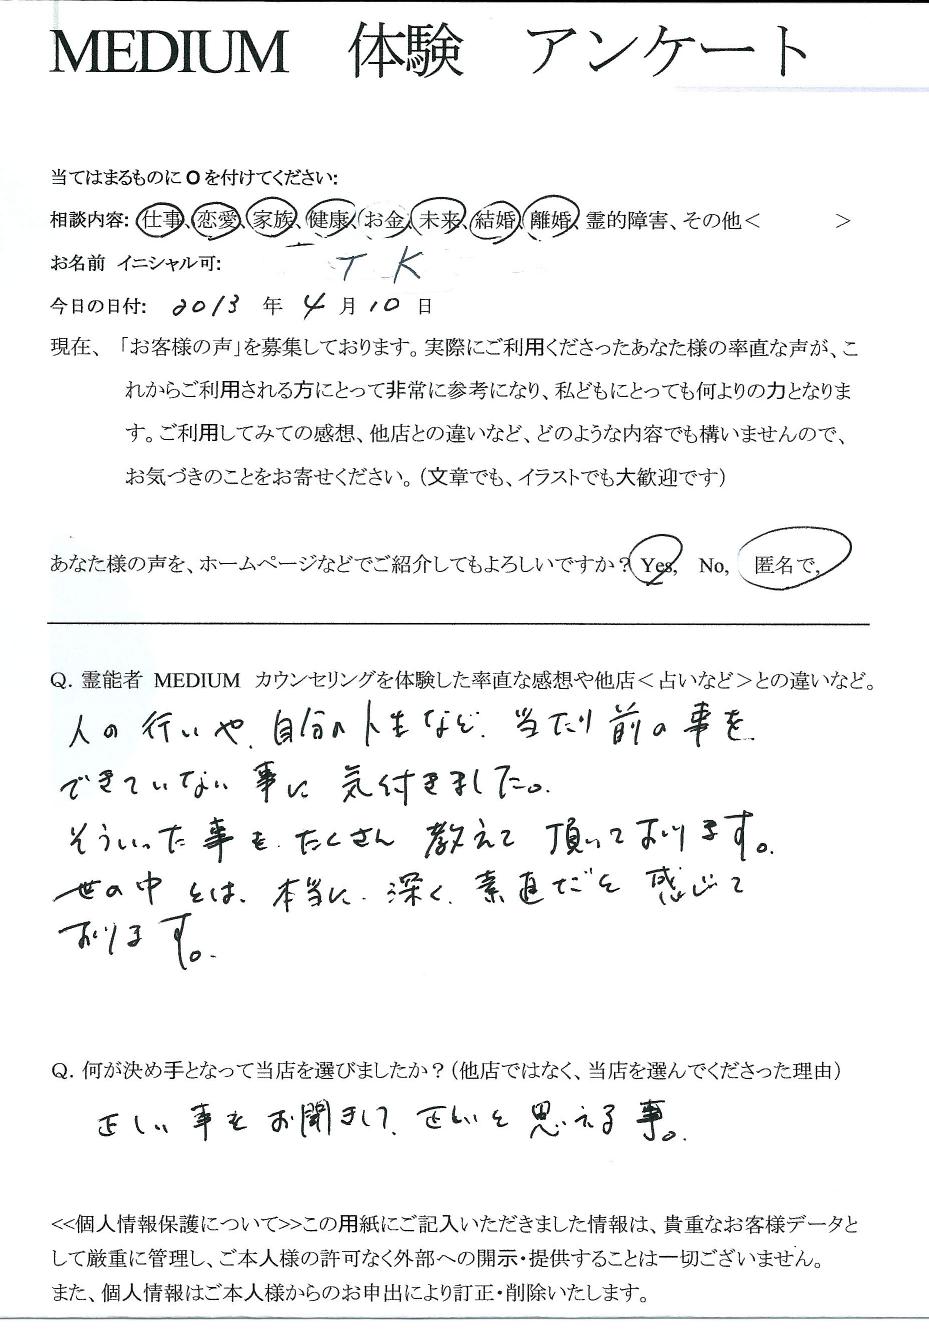 MEDIUM 体験 アンケート
当てはまるものに O を付けてください:
相談内容: 仕事、恋愛、家族、健康、お金、未来、結婚、離婚、霊的障害、その他＜　　　＞
お名前 イニシャル可: T K
今日の日付: 2013 年 4 月 10 日
現在、「お客様の声」を募集しております。実際にご利用くださったあなた様の率直な声が、こ
れからご利用される方にとって非常に参考になり、私どもにとっても何よりの力となりま
す。ご利用してみての感想、他店との違いなど、どのような内容でも構いませんので、
お気づきのことをお寄せください。（文章でも、イラストでも大歓迎です）
あなた様の声を、ホームページなどでご紹介してもよろしいですか？ Yes, No, 匿名で,
Q. 霊能者 MEDIUM カウンセリングを体験した率直な感想や他店＜占いなど＞との違いなど。
人の行いや、自分の人生など、当たり前の事を
できていない事に気付きました。
そういった事を、たくさん教えて頂いております。
世の中とは、本当に、深く、素直だと感じて
おります。
Q. 何が決め手となって当店を選びましたか？（他店ではなく、当店を選んでくださった理由）
正しい事をお聞きして、正しいと思える事。
<<個人情報保護について>>この用紙にご記入いただきました情報は、貴重なお客様データと
して厳重に管理し、ご本人様の許可なく外部への開示・提供することは一切ございません。
また、個人情報はご本人様からのお申出により訂正・削除いたします。